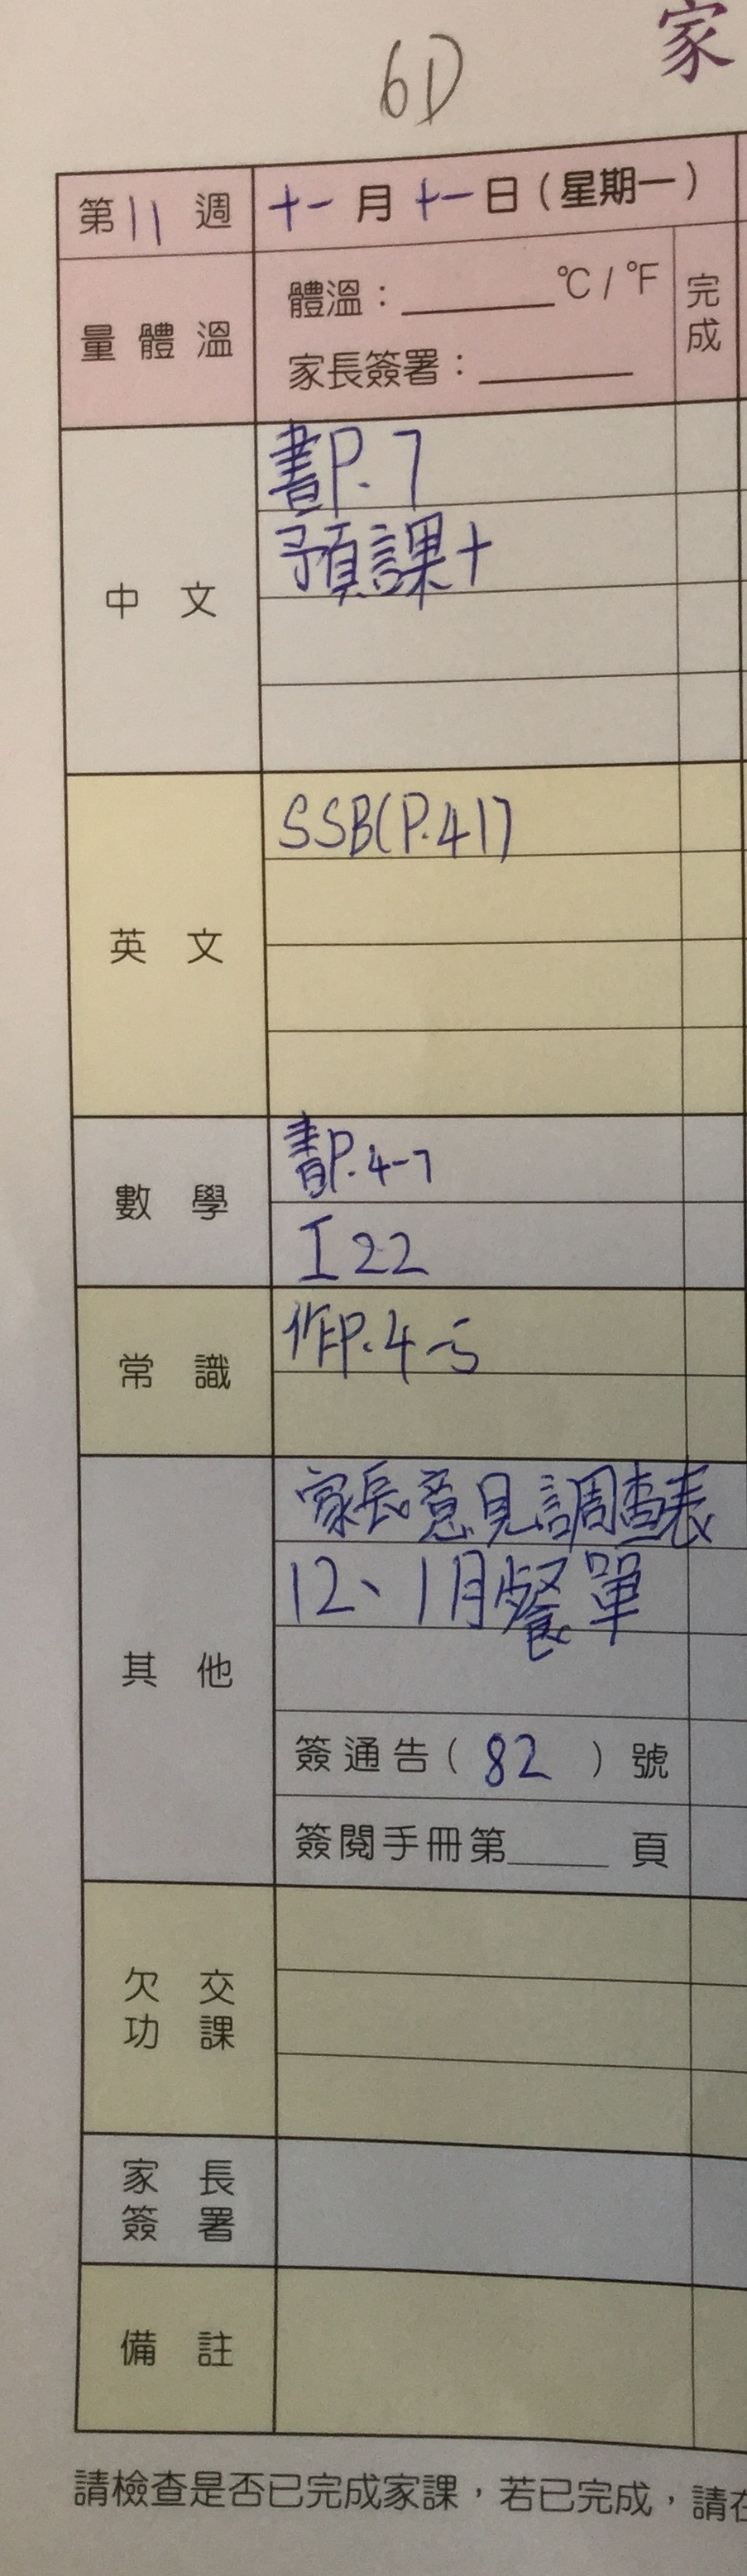 6D
家
第11週 十一月十一日(星期一)
量體溫
體溫:______°C / °F
家長簽署:______
完成
中文
書P.7
預課十
英文
SSB(P.41)
數學
書P.4-7
I22
常識
作P.4-5
其他
家長意見調查表
12、1月餐單
簽通告(82)號
簽閱手冊第______頁
欠交功課
家長簽署
備註
請檢查是否已完成家課,若已完成,請在